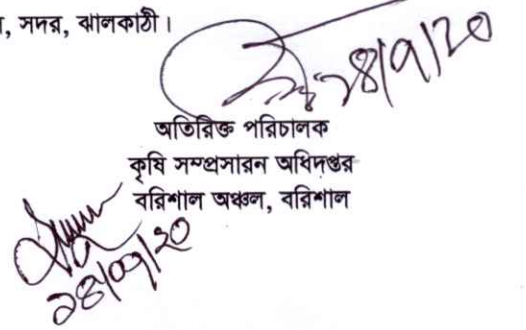 , সদর, ঝালকাঠী।
অতিরিক্ত পরিচালক
কৃষি সম্প্রসারন অধিদপ্তর
বরিশাল অঞ্চল, বরিশাল